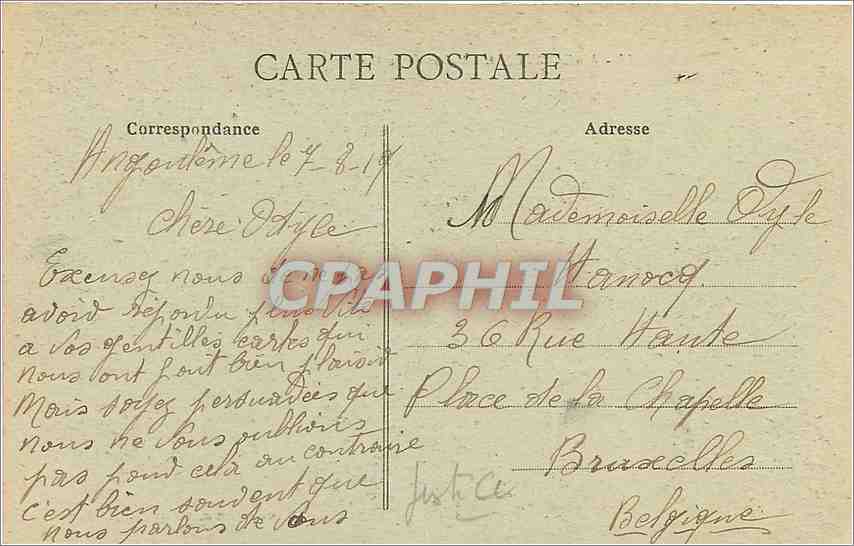 CARTE POSTALE
Correspondance
Angoulême le 7-8-19
Chère Odyle
Excusez nous de ne pas
avoir répondu plus vite
a vos gentilles cartes qui
nous ont fait bien plaisir
Mais soyez persuadées que
nous ne vous oublions
pas pour cela au contraire
c'est bien souvent que
nous parlons de vous
Adresse
Mademoiselle Odyle
Hanocq
36 Rue Haute
Place de la Chapelle
Bruxelles
Belgique
Justice
CPAPHIL